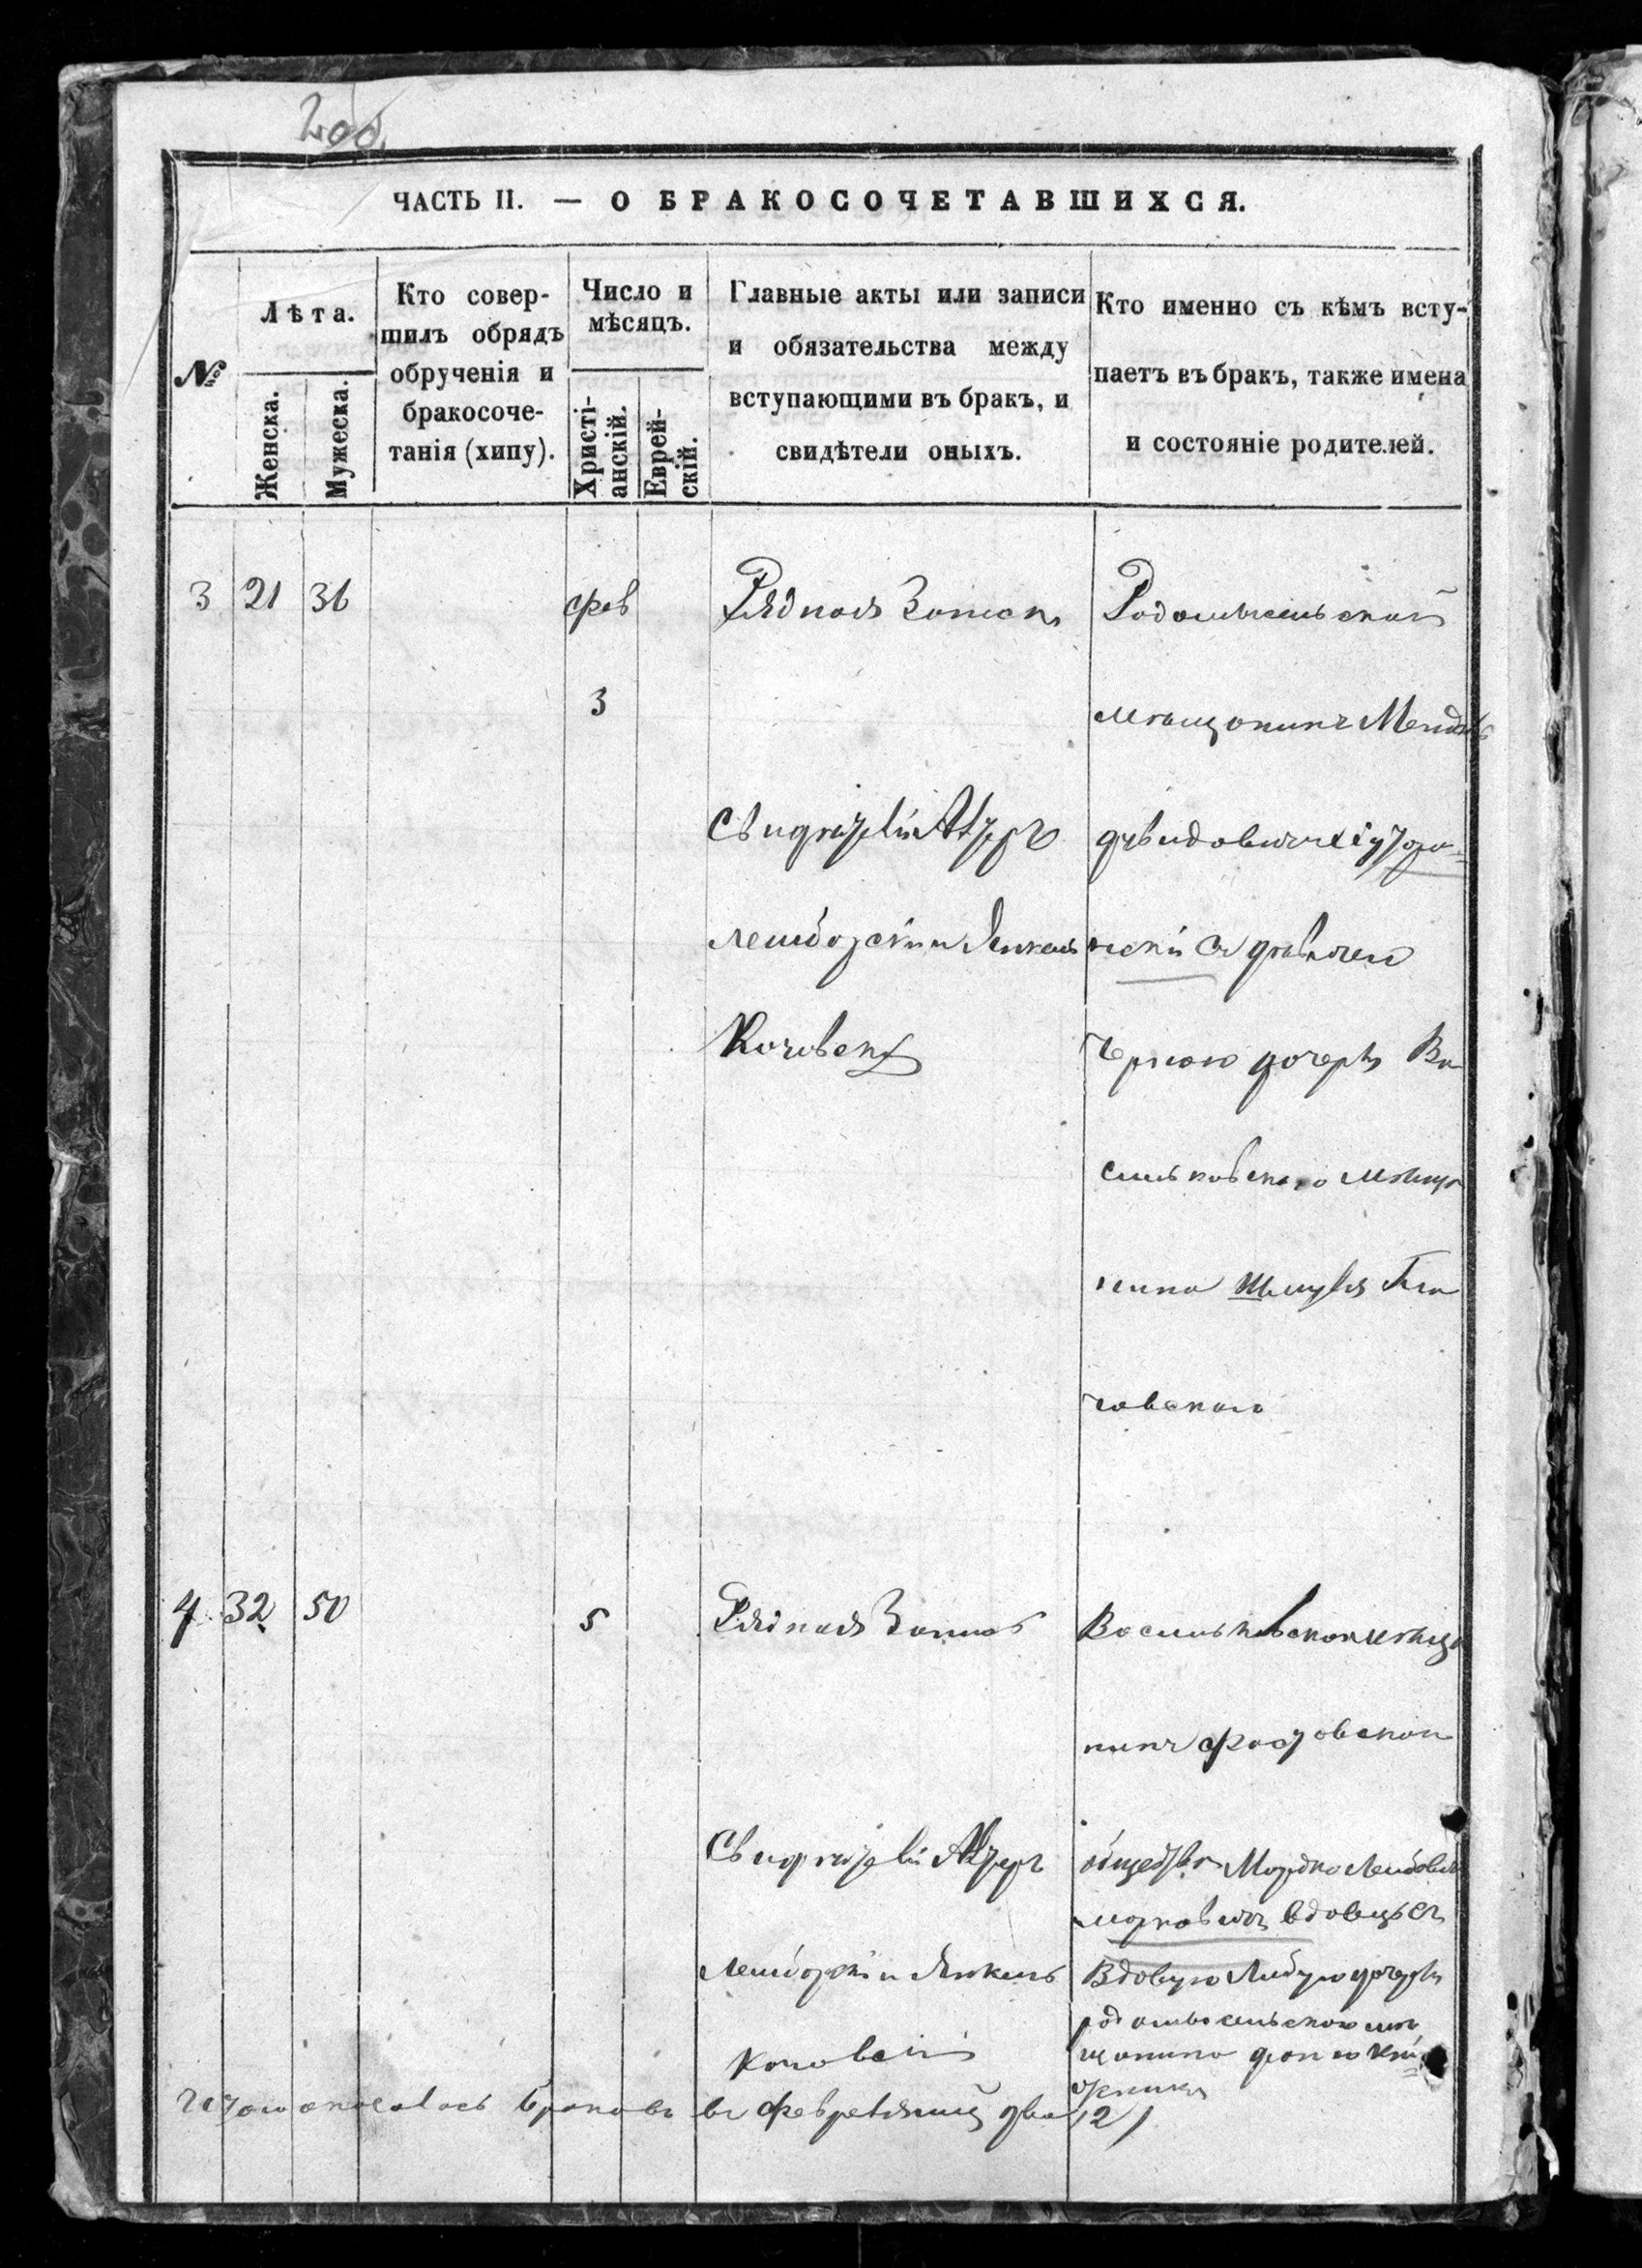 2об.
ЧАСТЬ II. — О БРАКОСОЧЕТАВШИХСЯ.
№
Лѣта.
Женска.
Мужеска.
Кто совер-
шилъ обрядъ
обрученія и
бракосоче-
танія (хипу).
Число и
мѣсяцъ.
Христі-
анскій.
Еврей-
скій.
Главные акты или записи
и обязательства между
вступающими въ бракъ, и
свидѣтели оныхъ.
Кто именно съ кѣмъ всту-
паетъ въ бракъ, также имена
и состояніе родителей.
3 21 36
фев
3
Рядная Запись
Свидѣтели
Лейборскій и Янкель
Радомысльскій
мѣщанинъ Мендель
скій съ дѣвицею
Черною дочерь Ва
сильковскаго мѣща
нина Шмуля
човскаго
4 32 50
5
Рядная Запись
Свидѣтели
Лейборскій и Янкель
Васильковской мѣща
нинъ Фастовской
общества Мордко Лейбовъ
вдовецъ съ
Вдовую Либую дочерь
радомысльскаго мѣ
щанина
Итого оказалось браковъ въ Феврелѣ два (2)